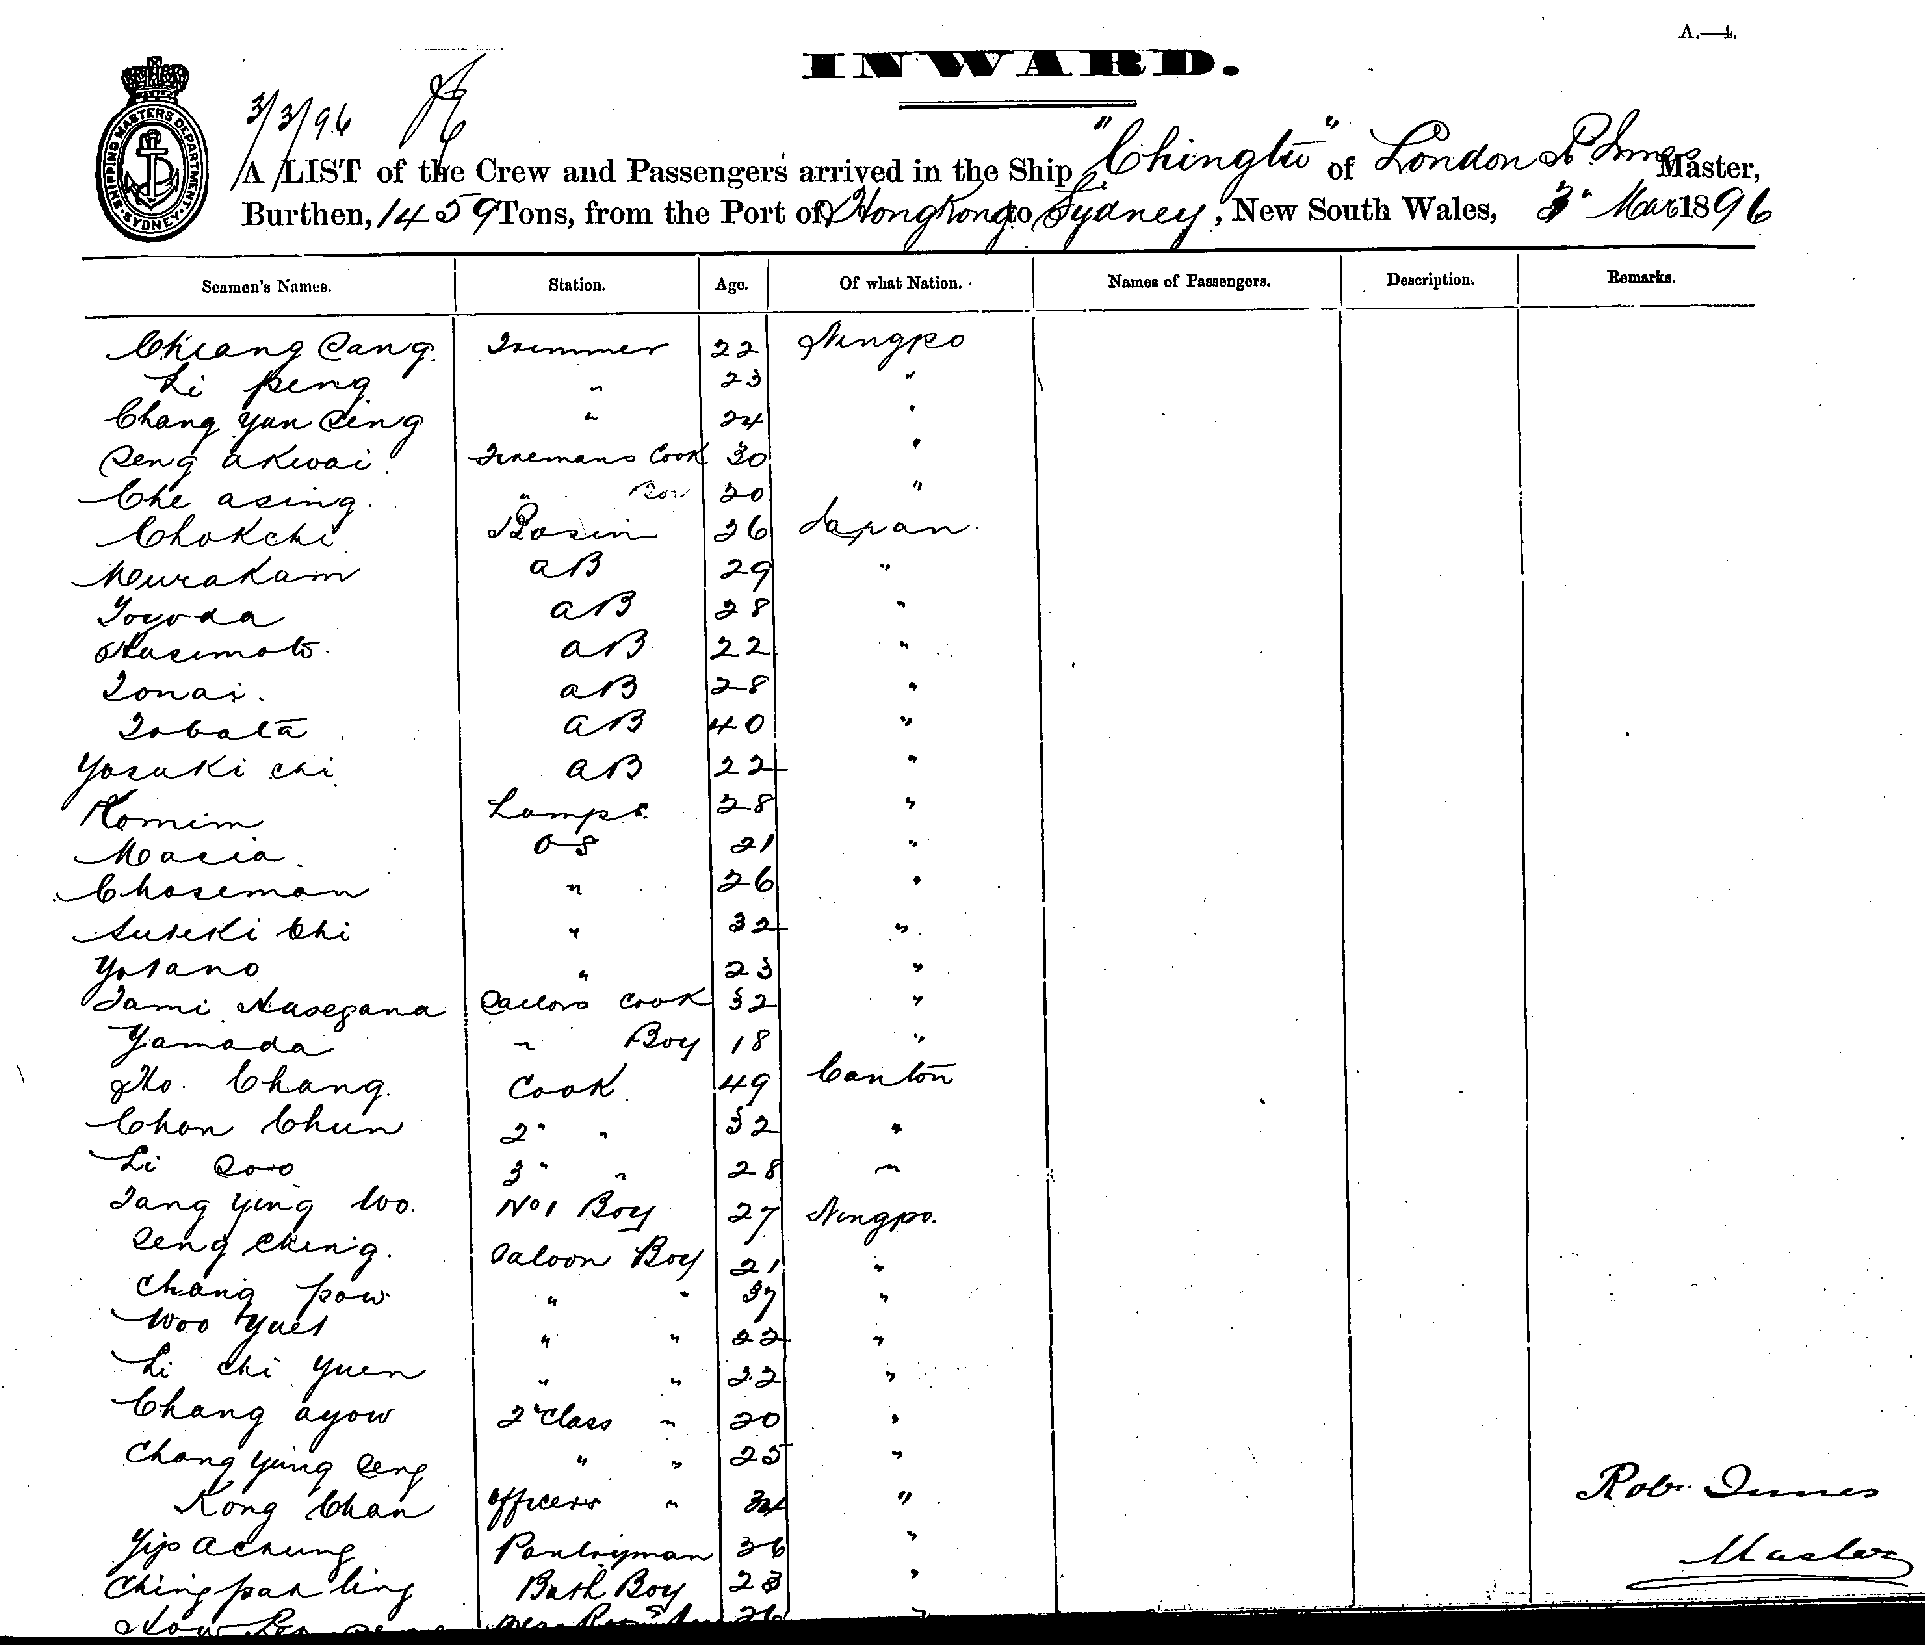 A.—4.
INWARD.
3/3/96
SHIPPING MASTERS DEPARTMENT SYDNEY
A LIST of the Crew and Passengers arrived in the Ship "Chingtu" of London R Innes Master,
Burthen, 1459 Tons, from the Port of Hong Kong to Sydney, New South Wales, 3 Mar 1896
Seamen's Names. Station. Age. Of what Nation. Names of Passengers. Description. Remarks.
Chiang Sang Trimmer 22 Ningpo
Li peng " 23 "
Chang yun Seng " 24 "
Seng akwai Firemans Cook 30 "
Che asing " Boy 20 "
Chokchi Bosin 26 Japan
Murakam AB 29 "
Toyoda AB 28 "
Hasimoto AB 22 "
Tonai AB 28 "
Tobata AB 40 "
Yosuki chi AB 22 "
Komim Lamps 28 "
Masia OS 21 "
Choseman " 26 "
Suseki Chi " 32 "
Yotano " 23 "
Tami Hasegana Sailors Cook 32 "
Yamada " Boy 18 "
Ho Chang Cook 49 Canton
Chon Chun 2" " 32 "
Li Soo 3" " 28 "
Tang Ying Woo No 1 Boy 27 Ningpo.
Seng Ching. Saloon Boy 21 "
Chang pow " " 37 "
Woo Yuet " " 22 "
Li Chi Yuen " " 22 "
Chang ayow 2 Class " 20 "
Chang Yung Seng " " 25 "
Kong Chan Officers " 34 " Rob. Innes
Yip Achung Pantryman 36 " Master
Ching pah ling Bath Boy 23 "
26